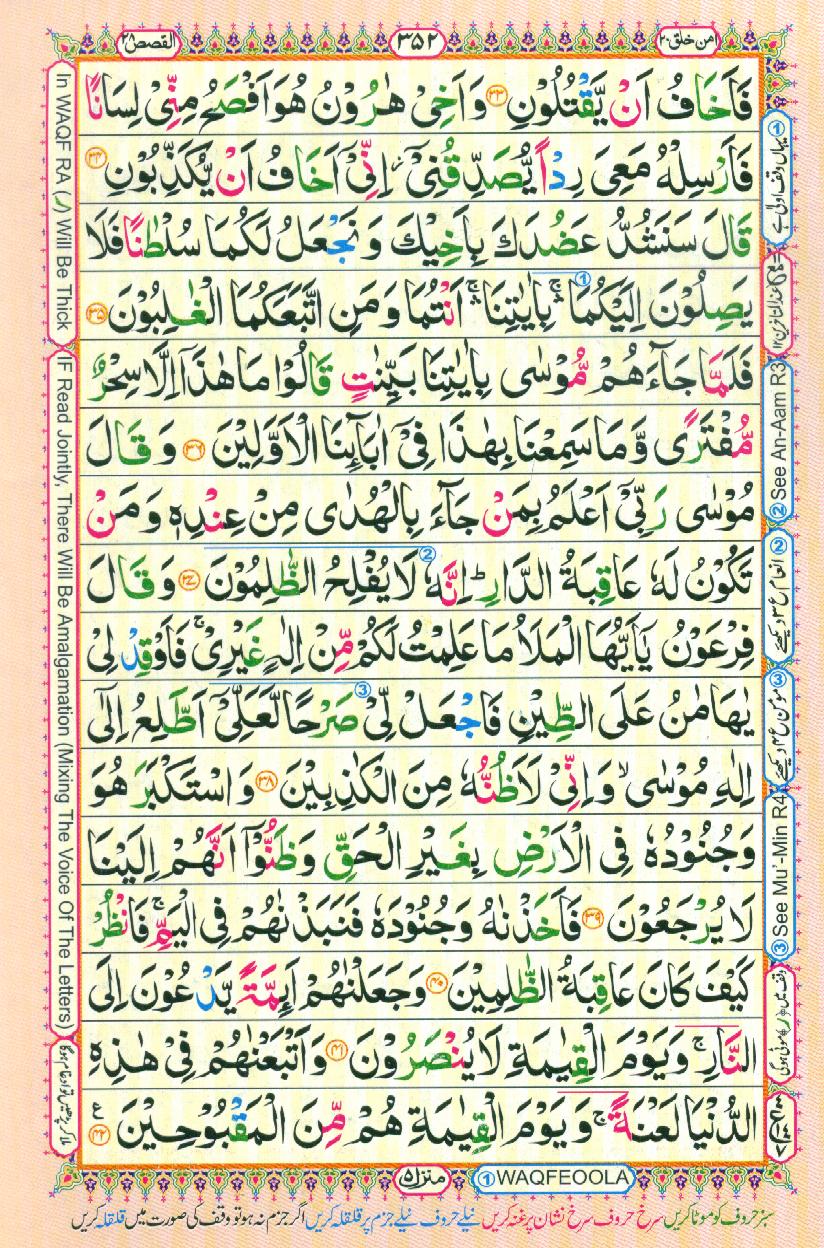 امن خلق ٢٠
٣٥٢
القصص ٢٨
فَاَخَافُ اَنْ یَّقْتُلُوْنِ ﴿٣٣﴾ وَ اَخِیْ هٰرُوْنُ هُوَ اَفْصَحُ مِنِّیْ لِسَانًا
فَاَرْسِلْهُ مَعِیَ رِدْاً یُّصَدِّقُنِیْۤ ؗ اِنِّیْۤ اَخَافُ اَنْ یُّكَذِّبُوْنِ ﴿٣٤﴾
قَالَ سَنَشُدُّ عَضُدَكَ بِاَخِیْكَ وَ نَجْعَلُ لَكُمَا سُلْطٰنًا فَلَا
یَصِلُوْنَ اِلَیْكُمَا ۛۚ ① بِاٰیٰتِنَا ۛۚ اَنْتُمَا وَ مَنِ اتَّبَعَكُمَا الْغٰلِبُوْنَ ﴿٣٥﴾
فَلَمَّا جَآءَهُمْ مُّوْسٰی بِاٰیٰتِنَا بَیِّنٰتٍ قَالُوْا مَا هٰذَاۤ اِلَّا سِحْرٌ
مُّفْتَرًی وَّ مَا سَمِعْنَا بِهٰذَا فِیْۤ اٰبَآىِٕنَا الْاَوَّلِیْنَ ﴿٣٦﴾ وَ قَالَ
مُوْسٰی رَبِّیْۤ اَعْلَمُ بِمَنْ جَآءَ بِالْهُدٰی مِنْ عِنْدِهٖ وَ مَنْ
تَكُوْنُ لَهٗ عَاقِبَةُ الدَّارِ ؕ اِنَّهٗ ② لَا یُفْلِحُ الظّٰلِمُوْنَ ﴿٣٧﴾ وَ قَالَ
فِرْعَوْنُ یٰۤاَیُّهَا الْمَلَاُ مَا عَلِمْتُ لَكُمْ مِّنْ اِلٰهٍ غَیْرِیْ ۚ فَاَوْقِدْ لِیْ
یٰهَامٰنُ عَلَی الطِّیْنِ فَاجْعَلْ لِّیْ ③ صَرْحًا لَّعَلِّیْۤ اَطَّلِعُ اِلٰۤی
اِلٰهِ مُوْسٰی ۙ وَ اِنِّیْ لَاَظُنُّهٗ مِنَ الْكٰذِبِیْنَ ﴿٣٨﴾ وَ اسْتَكْبَرَ هُوَ
وَ جُنُوْدُهٗ فِی الْاَرْضِ بِغَیْرِ الْحَقِّ وَ ظَنُّوْۤا اَنَّهُمْ اِلَیْنَا
لَا یُرْجَعُوْنَ ﴿٣٩﴾ فَاَخَذْنٰهُ وَ جُنُوْدَهٗ فَنَبَذْنٰهُمْ فِی الْیَمِّ ۚ فَانْظُرْ
كَیْفَ كَانَ عَاقِبَةُ الظّٰلِمِیْنَ ﴿٤٠﴾ وَ جَعَلْنٰهُمْ اَىِٕمَّةً یَّدْعُوْنَ اِلَی
النَّارِ ۚ وَ یَوْمَ الْقِیٰمَةِ لَا یُنْصَرُوْنَ ﴿٤١﴾ وَ اَتْبَعْنٰهُمْ فِیْ هٰذِهِ
الدُّنْیَا لَعْنَةً ۚ وَ یَوْمَ الْقِیٰمَةِ هُمْ مِّنَ الْمَقْبُوْحِیْنَ ﴿٤٢﴾ ع
① یہاں وقف اولیٰ ہے
② See An-Aam R3
② انعام ع ٣ دیکھئے
③ مؤمن ع ٤ دیکھئے
③ See Mu'-Min R4
وقف میں (ر) موٹی ہوگی
In WAQF RA (ر) Will Be Thick
IF Read Jointly, There Will Be Amalgamation (Mixing The Voice Of The Letters)
ملا کر پڑھیں تو ادغام ہوگا
منزل ٥
① WAQFEOOLA
سبز حروف کو موٹا کریں سرخ حروف سرخ نشان پر غنہ کریں نیلے حروف نیلے جزم پر قلقلہ کریں اگر جزم نہ ہو تو وقف کی صورت میں قلقلہ کریں